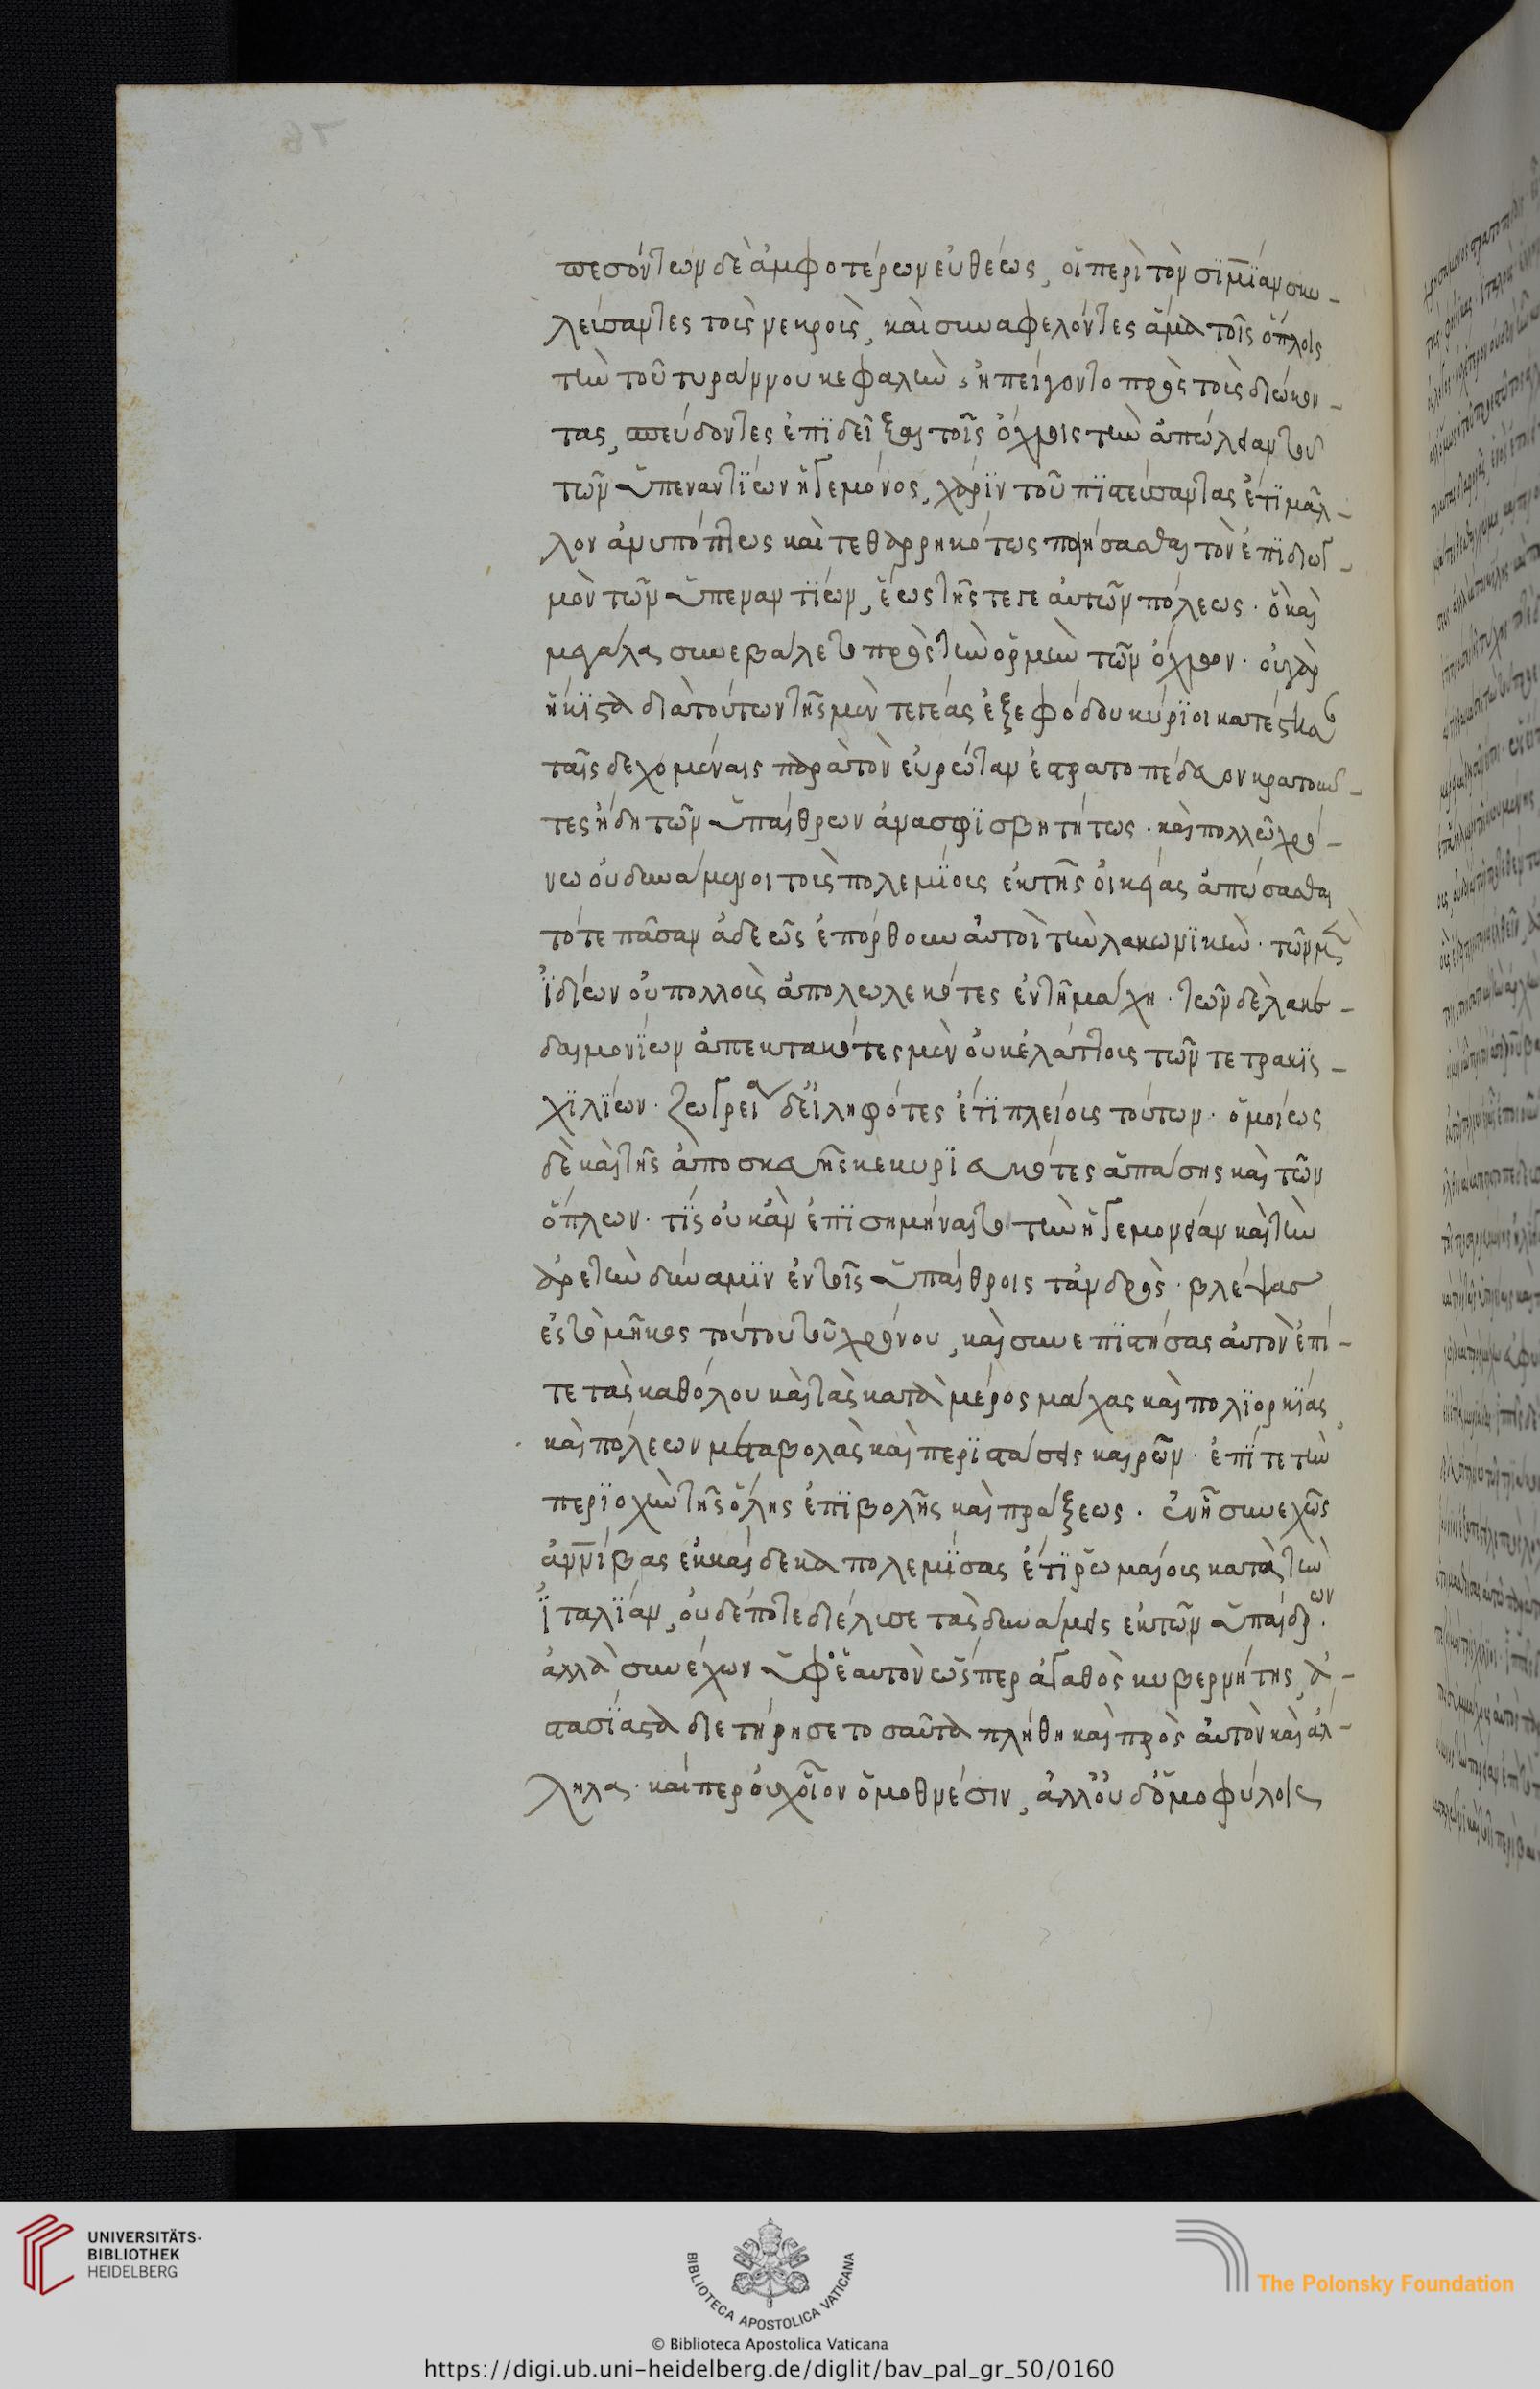 πεσόντων δὲ ἀμφοτέρων εὐθέως, οἱ περὶ τὸν σιμίαν σκυ-
λεύσαντες τοὺς νεκροὺς, καὶ συναφελόντες ἅμα τοῖς ὅπλοις
τὴν τοῦ τυράννου κεφαλὴν, ἠπείγοντο πρὸς τοὺς διώκον-
τας, σπεύδοντες ἐπιδεῖξαι τοῖς ὄχλοις τὴν ἀπώλειαν τοῦ
τῶν ὑπεναντίων ἡγεμόνος, χάριν τοῦ πιστεύσαντας ἔτι μᾶλ-
λον ἀνυπόπτως καὶ τεθαρρηκότως ποιήσασθαι τὸν ἐπιδιωγ-
μὸν τῶν ὑπεναντίων, ἕως τῆς τεγεατῶν πόλεως. ὃ καὶ
μεγάλα συνεβάλετο πρὸς τὴν ὁρμὴν τῶν ὄχλων. οὐ γὰρ
ἥκιστα διὰ τούτων τῆς μὲν τεγέας ἐξ ἐφόδου κύριοι κατέστησαν
ταῖς δεχομέναις παρὰ τὸν εὐρώταν ἐστρατοπέδευον κρατοῦν-
τες ἤδη τῶν ὑπαίθρων ἀναμφισβητήτως. καὶ πολλῶ χρό-
νω οὐ δυνάμενοι τοὺς πολεμίους ἐκ τῆς οἰκείας ἀπώσασθαι
τότε πᾶσαν ἀδεῶς ἐπόρθουν αὐτοὶ τὴν λακωνικὴν. τῶν μὲν
ἰδίων οὐ πολλοὺς ἀπολωλεκότες ἐν τῆ μάχη. τῶν δὲ λακε-
δαιμονίων ἀπεκτακότες μὲν οὐκ ἐλάττους τῶν τετρακισ-
χιλίων. ζωγρεία δ' εἰληφότες ἔτι πλείους τούτων. ὁμοίως
δὲ καὶ τῆς ἀποσκευῆς κεκυριευκότες ἁπάσης καὶ τῶν
ὅπλων. τίς οὐκ ἂν ἐπισημήναιτο τὴν ἡγεμονείαν καὶ τὴν
ἀρετὴν δύναμιν ἐν τοῖς ὑπαίθροις τἀνδρὸς. βλέψας
εἰς τὸ μῆκος τούτου τοῦ χρόνου, καὶ συνεπιστήσας αὑτὸν ἐπί
τε τὰς καθόλου καὶ τὰς κατὰ μέρος μάχας καὶ πολιορκίας,
καὶ πόλεων μεταβολὰς καὶ περιστάσεις καιρῶν. ἐπί τε τὴν
περιοχὴν τῆς ὅλης ἐπιβολῆς καὶ πράξεως. ἐν ἧ συνεχῶς
ἀννίβας ἑκκαίδεκα πολεμήσας ἔτι ῥωμαίοις κατὰ τὴν
ἰταλίαν, οὐδέποτε διέλυσε τὰς δυνάμεις ἐκ τῶν ὑπαίθρων.
ἀλλὰ συνέχων ὑφ' ἑαυτὸν ὥσπερ ἀγαθὸς κυβερνήτης, ἀ-
στασίαστα διετήρησε τοσαῦτα πλήθη καὶ πρὸς αὑτὸν καὶ ἀλ-
ληλας. καίπερ οὐχ οἷον ὁμοεθνέσιν, ἀλλ' οὐδ' ὁμοφύλοις
UNIVERSITÄTS-
BIBLIOTHEK
HEIDELBERG
BIBLIOTECA APOSTOLICA VATICANA
The Polonsky Foundation
© Biblioteca Apostolica Vaticana
https://digi.ub.uni-heidelberg.de/diglit/bav_pal_gr_50/0160